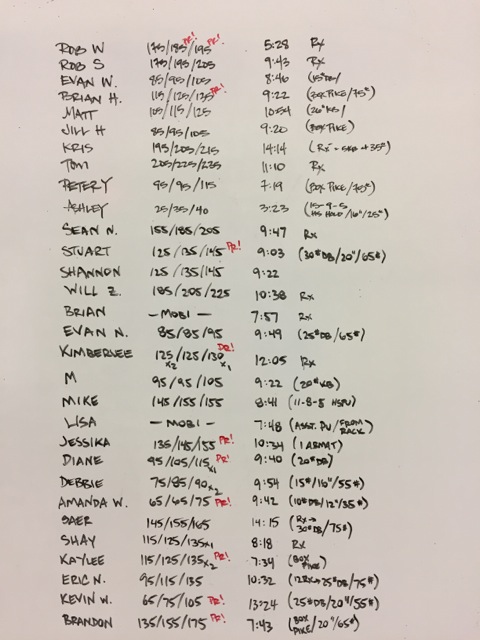 ROB W 175/185/195 PR! PR! 5:28 Rx
ROB S 175/195/205 9:43 Rx
EVAN W. 85/95/105 8:46 (15#DB/
BRIAN H. 115/125/135 PR! 9:22 (BOX PIKE/75#)
MATT 105/115/125 10:54
JILL H 85/95/105 9:20 (BOX PIKE)
KRIS 195/205/215 14:14
TOM 205/225/235 11:10 Rx
PETER Y 95/95/115 7:19 (BOX PIKE/75#)
ASHLEY 25/35/40 3:23 (15-9-5 HS HOLD/16"/25#)
SEAN N. 155/185/205 9:47 Rx
STUART 125/135/145 PR! 9:03 (30#DB/20"/65#)
SHANNON 125/135/145 9:22
WILL Z. 185/205/225 10:38 Rx
BRIAN - MOBI - 7:57 Rx
EVAN N. 85/85/95 9:49 (25#DB/65#)
KIMBERLEE 125x2/125/130x1 PR! 12:05 Rx
M 95/95/105 9:22 (20#KB)
MIKE 145/155/155 8:41 (11-8-5 HSPU)
LISA - MOBI - 7:48 (ASST. PU/FROM RACK)
JESSIKA 135/145/155 PR! 10:34 (1 ABMAT)
DIANE 95/105/115x1 PR! 9:40 (20#DB)
DEBBIE 75/85/90x2 9:54 (15#/16"/55#)
AMANDA W. 65/65/75 PR! 9:42 (10#DB/12"/35#)
SAER 145/155/165 14:15 (Rx→30#DB/75#)
SHAY 115/125/135x1 8:18 Rx
KAYLEE 115/125/135x2 PR! 7:34 (BOX PIKE)
ERIC N. 95/115/135 10:32 (12Rx→25#DB/75#)
KEVIN W. 65/75/105 PR! 13:24 (25#DB/20"/55#)
BRANDON 135/155/175 PR! 7:43 (BOX PIKE/20"/65#)